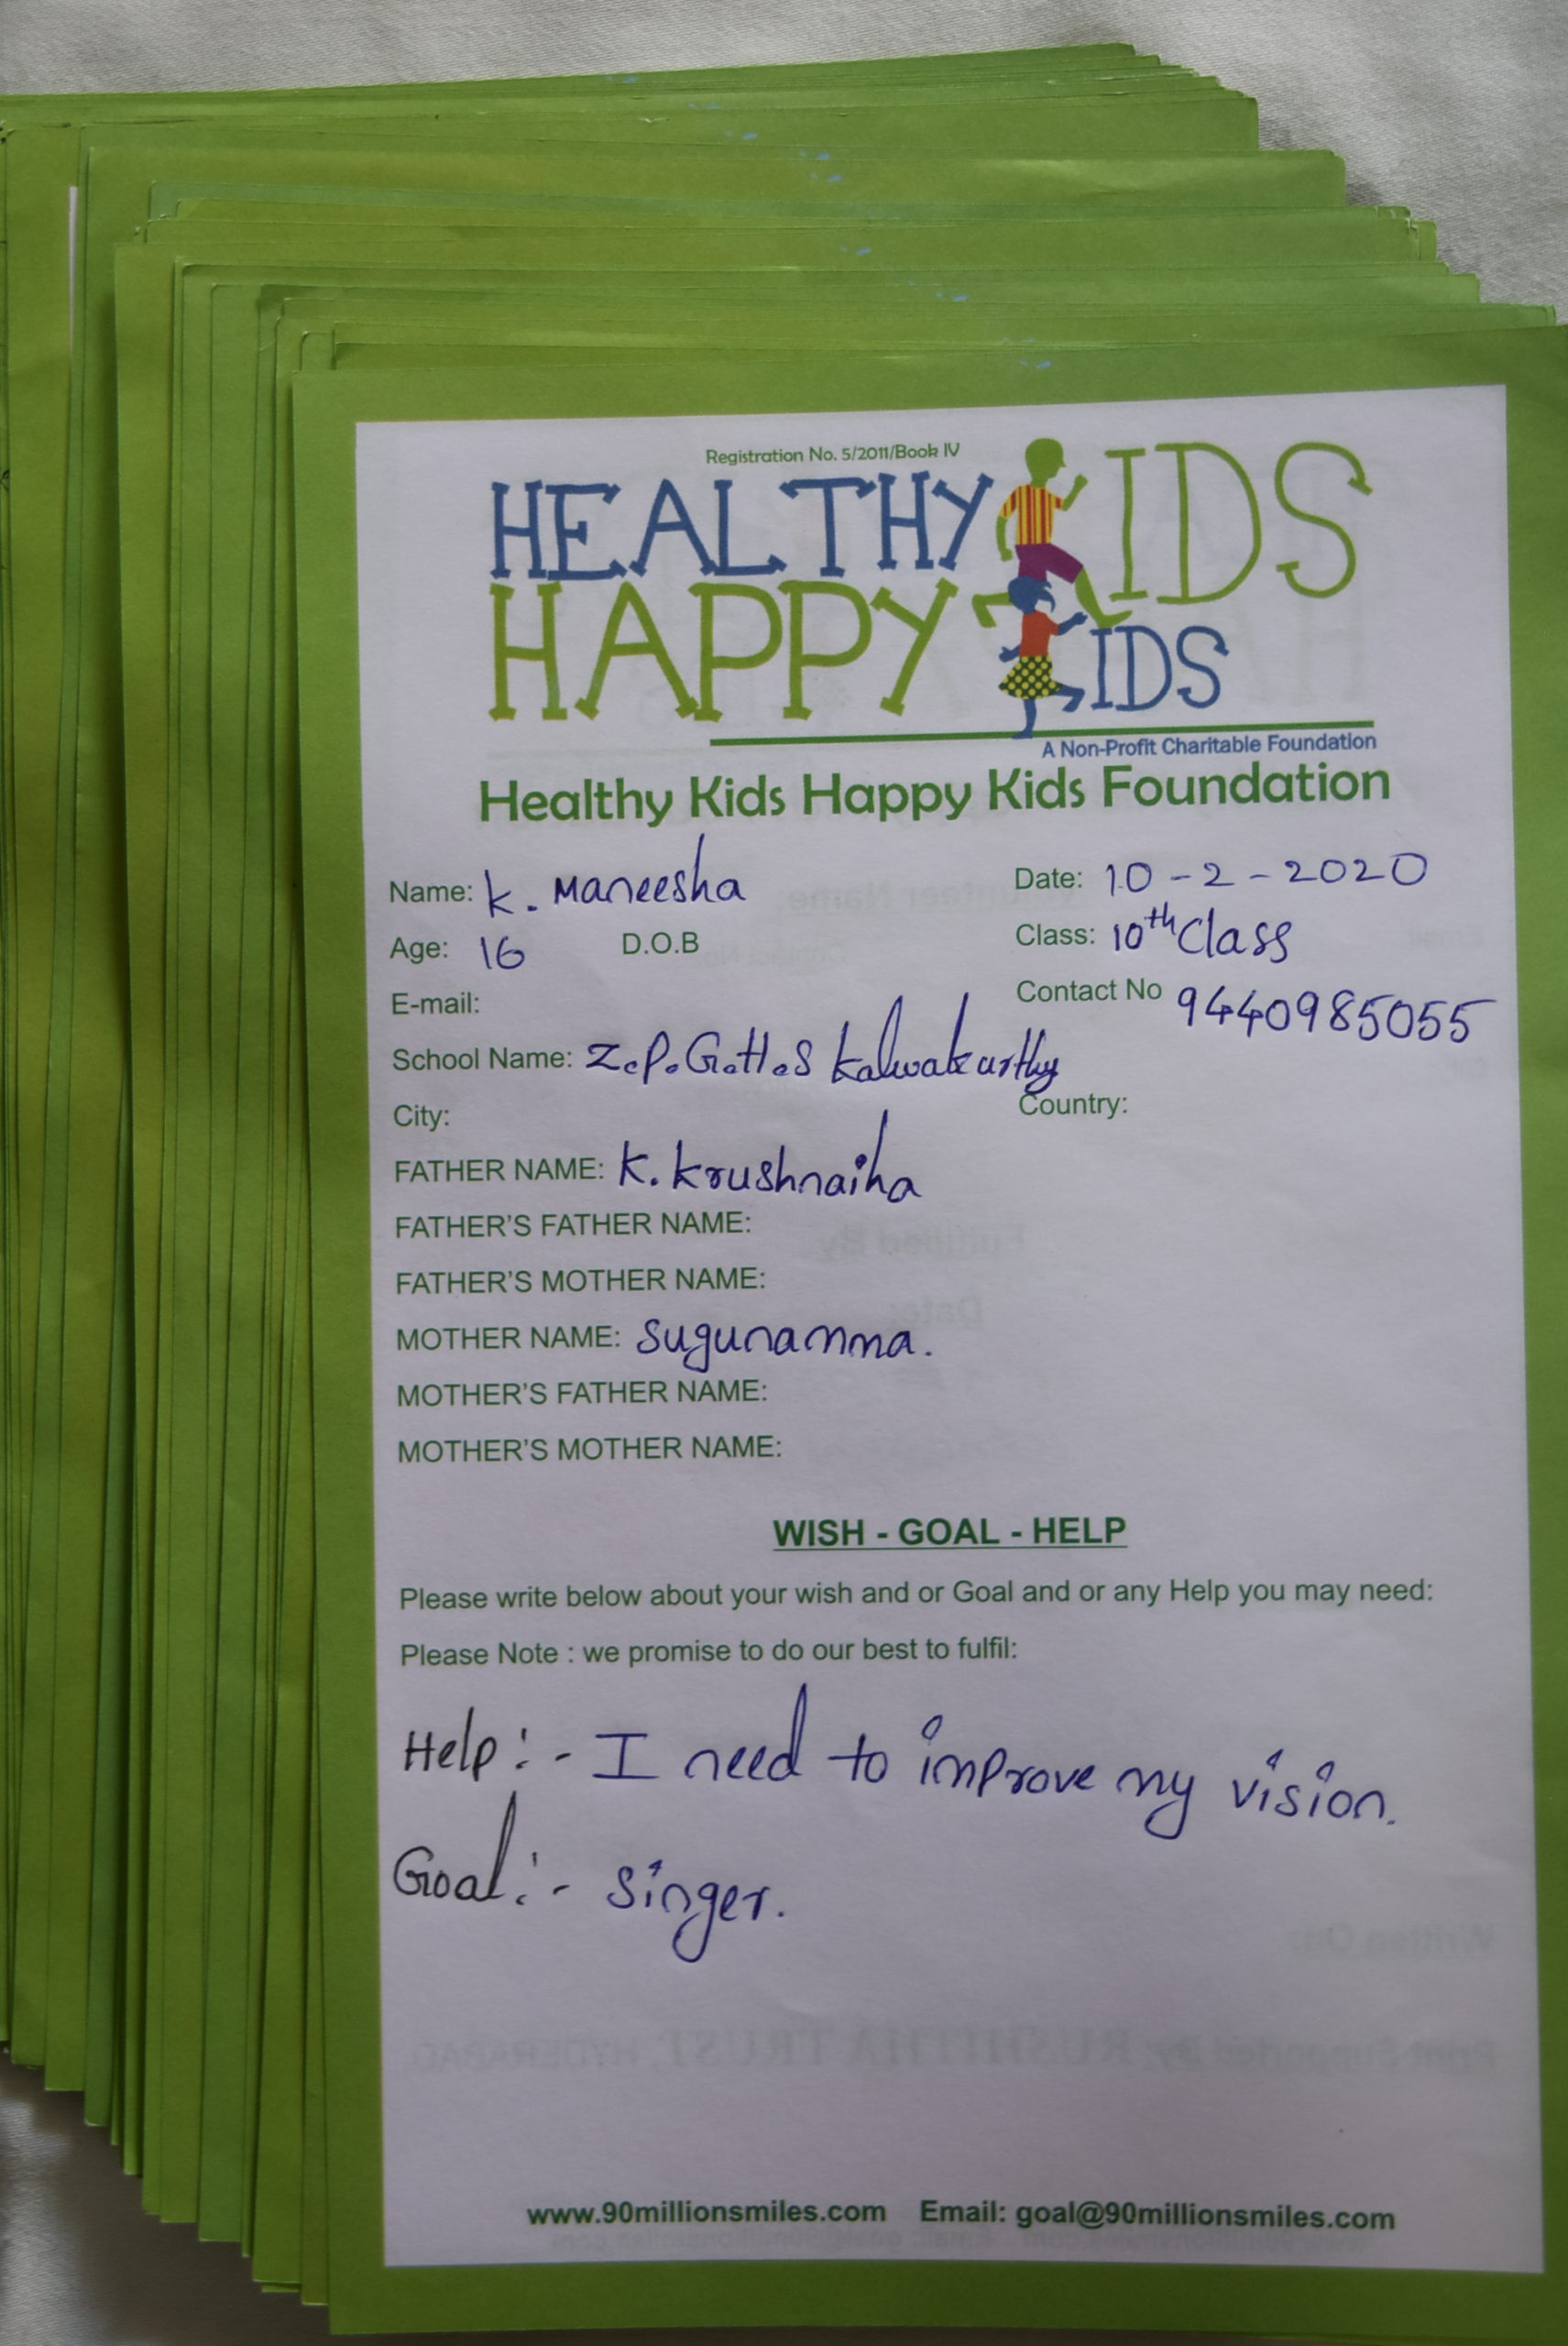 Registration No. 5/2011/Book IV
HEALTHY KIDS
HAPPY KIDS
A Non-Profit Charitable Foundation
Healthy Kids Happy Kids Foundation
Name: K. Maneesha Date: 10-2-2020
Age: 16 D.O.B Class: 10th Class
E-mail: Contact No 9440985055
School Name: Z.P.G.H.S Kalwakurthy
City: Country:
FATHER NAME: K. Krushnaiha
FATHER'S FATHER NAME:
FATHER'S MOTHER NAME:
MOTHER NAME: Sugunamma.
MOTHER'S FATHER NAME:
MOTHER'S MOTHER NAME:
WISH - GOAL - HELP
Please write below about your wish and or Goal and or any Help you may need:
Please Note : we promise to do our best to fulfil:
Help:- I need to improve my vision.
Goal:- Singer.
www.90millionsmiles.com Email: goal@90millionsmiles.com